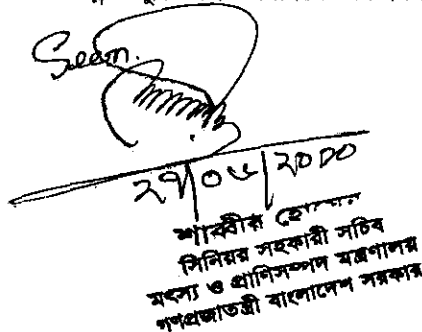 Seen.
২৭|০৬|২০১০
শাব্বীর
সিনিয়র সহকারী সচিব
মৎস্য ও প্রাণিসম্পদ মন্ত্রণালয়
গণপ্রজাতন্ত্রী বাংলাদেশ সরকার